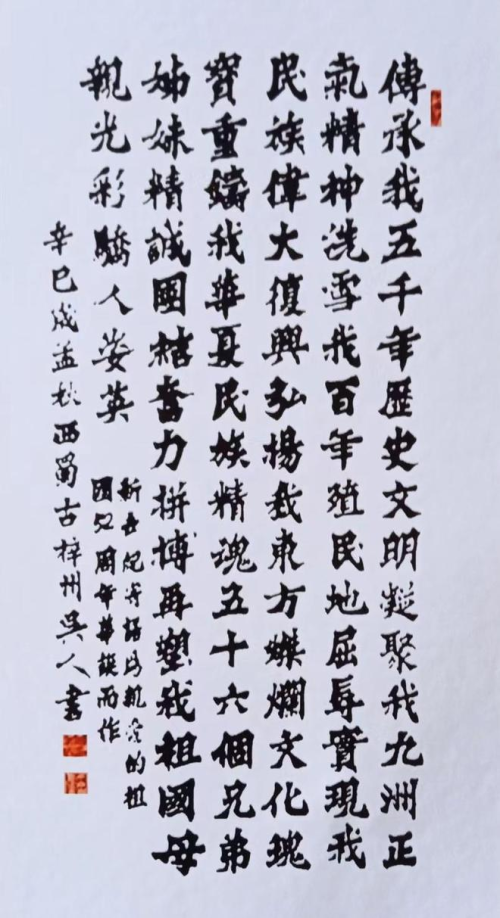 傳承我五千年歷史文明凝聚我九洲正
氣精神洗雪我百年殖民地屈辱實現我
民族偉大復興弘揚我東方燦爛文化瑰
寶重鑄我華夏民族精魂五十六個兄弟
姊妹精誠團結奮力拼搏再塑我祖國母
親光彩驕人姿英
新世紀寄語為親愛的祖
國52周年華誕而作
辛巳孟秋西蜀古梓州吳人書